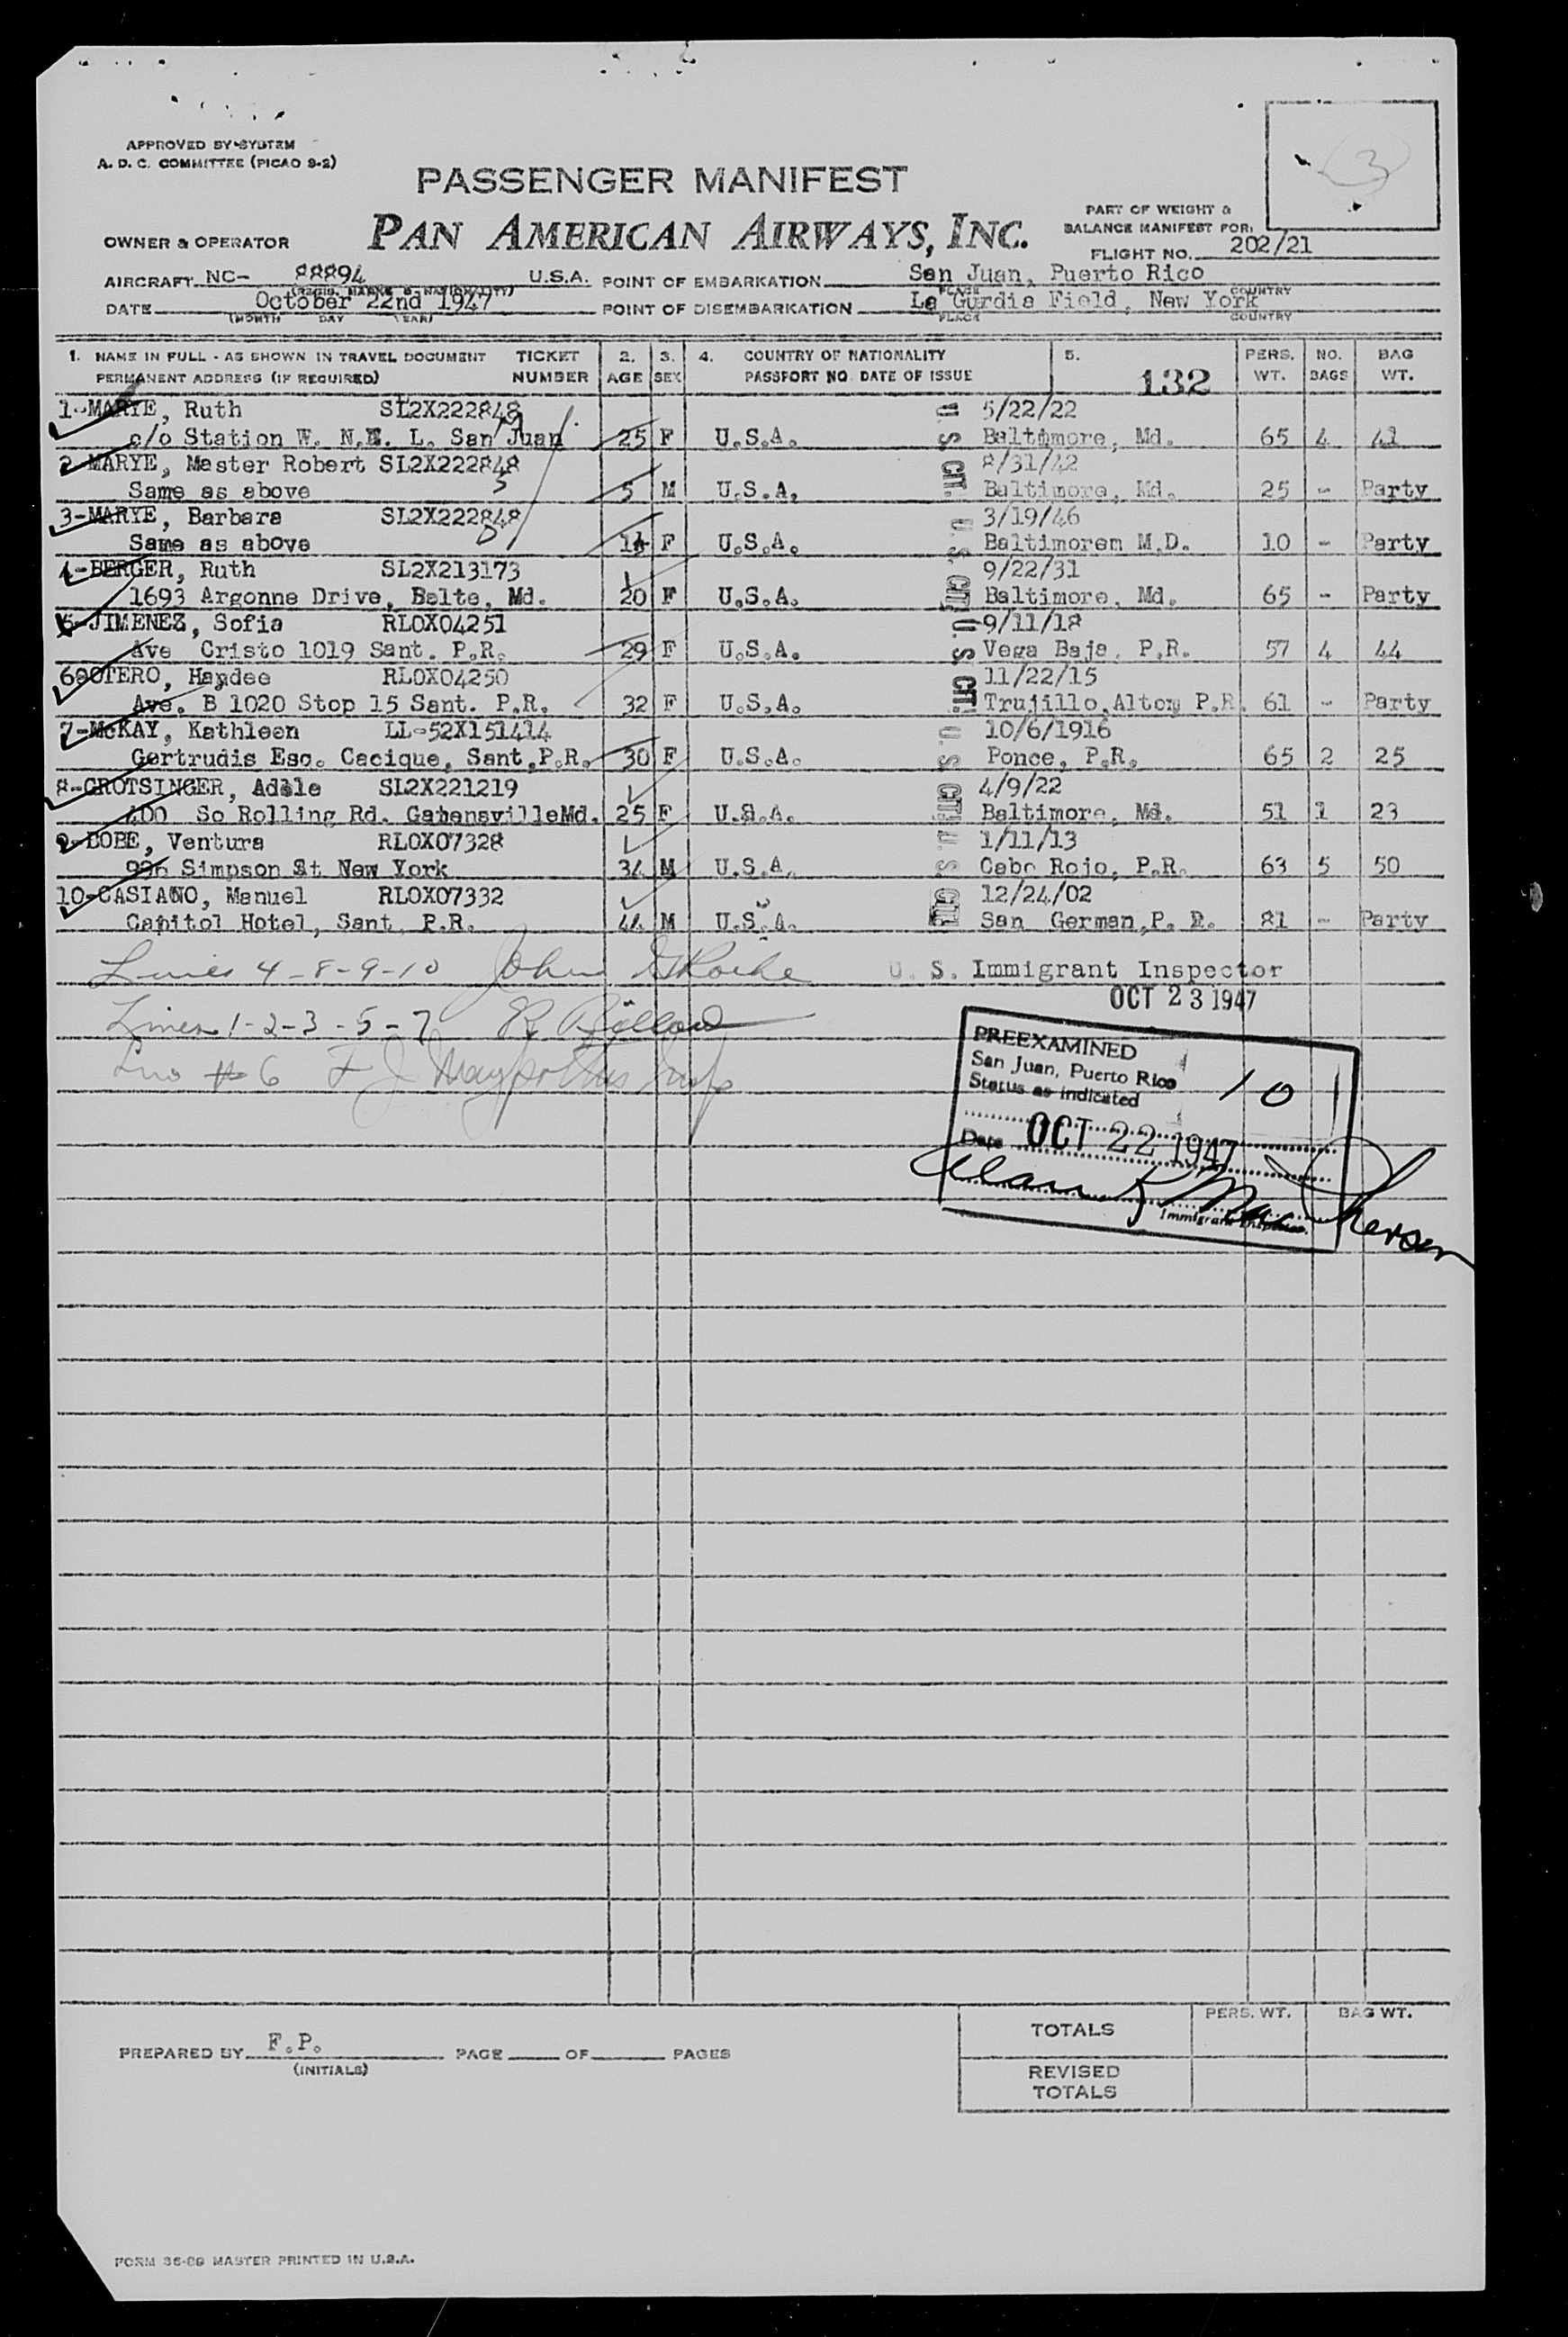 APPROVED BY SYSTEM
A. D. C. COMMITTEE (PICAO 9-2)
3
PASSENGER MANIFEST
PAN AMERICAN AIRWAYS, INC.
OWNER & OPERATOR
PART OF WEIGHT &
BALANCE MANIFEST FOR:
FLIGHT NO. 202/21
AIRCRAFT NC- 88894 U.S.A. POINT OF EMBARKATION San Juan, Puerto Rico
(REGIS. MARKS & NATIONALITY) PLACE COUNTRY
DATE October 22nd 1947 POINT OF DISEMBARKATION La Gurdia Field, New York
(MONTH DAY YEAR) PLACE COUNTRY
1. NAME IN FULL - AS SHOWN IN TRAVEL DOCUMENT TICKET 2. 3. 4. COUNTRY OF NATIONALITY 5. PERS. NO. BAG
PERMANENT ADDRESS (IF REQUIRED) NUMBER AGE SEX PASSPORT NO. DATE OF ISSUE 132 WT. BAGS WT.
1-MARYE, Ruth SL2X222848 5/22/22
c/o Station W. N.E. L. San Juan 25 F U.S.A. U. S. CIT. Baltimore, Md. 65 4 41
2-MARYE, Master Robert SL2X222848 8/31/42
Same as above 5 M U.S.A. Baltimore, Md. 25 - Party
3-MARYE, Barbara SL2X222848 3/19/46
Same as above F U.S.A. U. S. CIT. Baltimorem M.D. 10 - Party
4-BERGER, Ruth SL2X213173 9/22/31
1693 Argonne Drive, Balto, Md. 20 F U.S.A. Baltimore, Md. 65 - Party
5-JIMENEZ, Sofia RLOX04251 9/11/18
Ave Cristo 1019 Sant. P.R. 29 F U.S.A. U. S. CIT. Vega Baja, P.R. 57 4 44
6-OTERO, Haydee RLOX04250 11/22/15
Ave. B 1020 Stop 15 Sant. P.R. 32 F U.S.A. Trujillo, Alto, P.R. 61 - Party
7-McKAY, Kathleen LL-52X151414 10/6/1916
Gertrudis Esq. Cacique, Sant, P.R. 30 F U.S.A. U. S. CIT. Ponce, P.R. 65 2 25
8-GROTSINGER, Adele SL2X221219 4/9/22
400 So Rolling Rd. GatensvilleMd. 25 F U.S.A. Baltimore, Md. 51 1 23
9-BOBE, Ventura RLOX07328 1/11/13
Simpson St New York 34 M U.S.A. U. S. CIT. Cabo Rojo, P.R. 63 5 50
10-CASIANO, Manuel RLOX07332 12/24/02
Capitol Hotel, Sant P.R. 44 M U.S.A. San German, P. R. 81 - Party
Lines 4-8-9-10 John Roche U. S. Immigrant Inspector
OCT 23 1947
Lines 1-2-3-5-7
Line #6 F J
PREEXAMINED
San Juan, Puerto Rico
Status as indicated
10
Date OCT 22 1947
Alan K MacPherson
Immigrant Inspector
PREPARED BY F.P. PAGE OF PAGES
(INITIALS)
PERS. WT. BAG WT.
TOTALS
REVISED
TOTALS
FORM 36-89 MASTER PRINTED IN U.S.A.